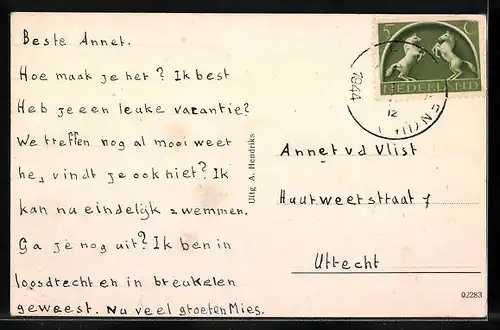 Beste Annet.
Hoe maak je het? Ik best
Heb je een leuke vacantie?
We treffen nog al mooi weer
he, vindt je ook niet? Ik
kan nu eindelijk zwemmen.
Ga je nog uit? Ik ben in
loosdrecht en in breukelen
geweest. Nu veel groeten Mies.
Uitg A. Hendriks
5 C
NEDERLAND
1944
12
Annet v d Vlist
Huurweerstraat 7
Uttecht
02283